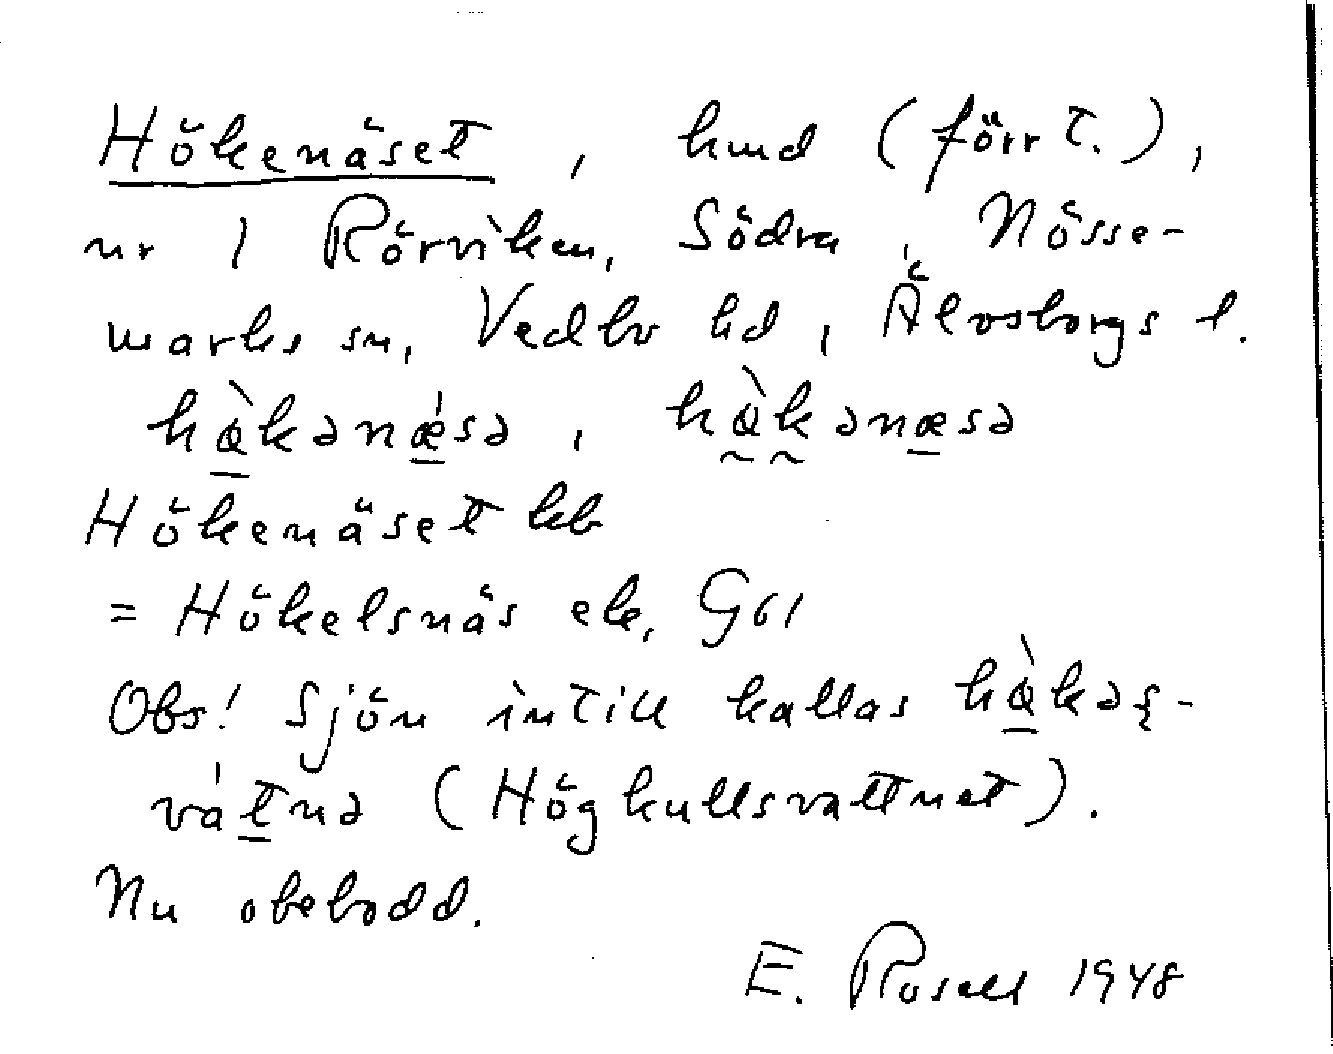 Hökenäset, hmd (förr t.),
nr 1 Rörviken, Södra, Nösse-
marks sn, Vedbo hd, Älvsborgs l.
hàkənǽsə, hàkənæsə
Hökenäset kb
= Hökelsnäs ek, G61
Obs! Sjön intill kallas hàkəs-
vátnə (Högkullsvattnet).
Nu obebodd.
E. Rosell 1948